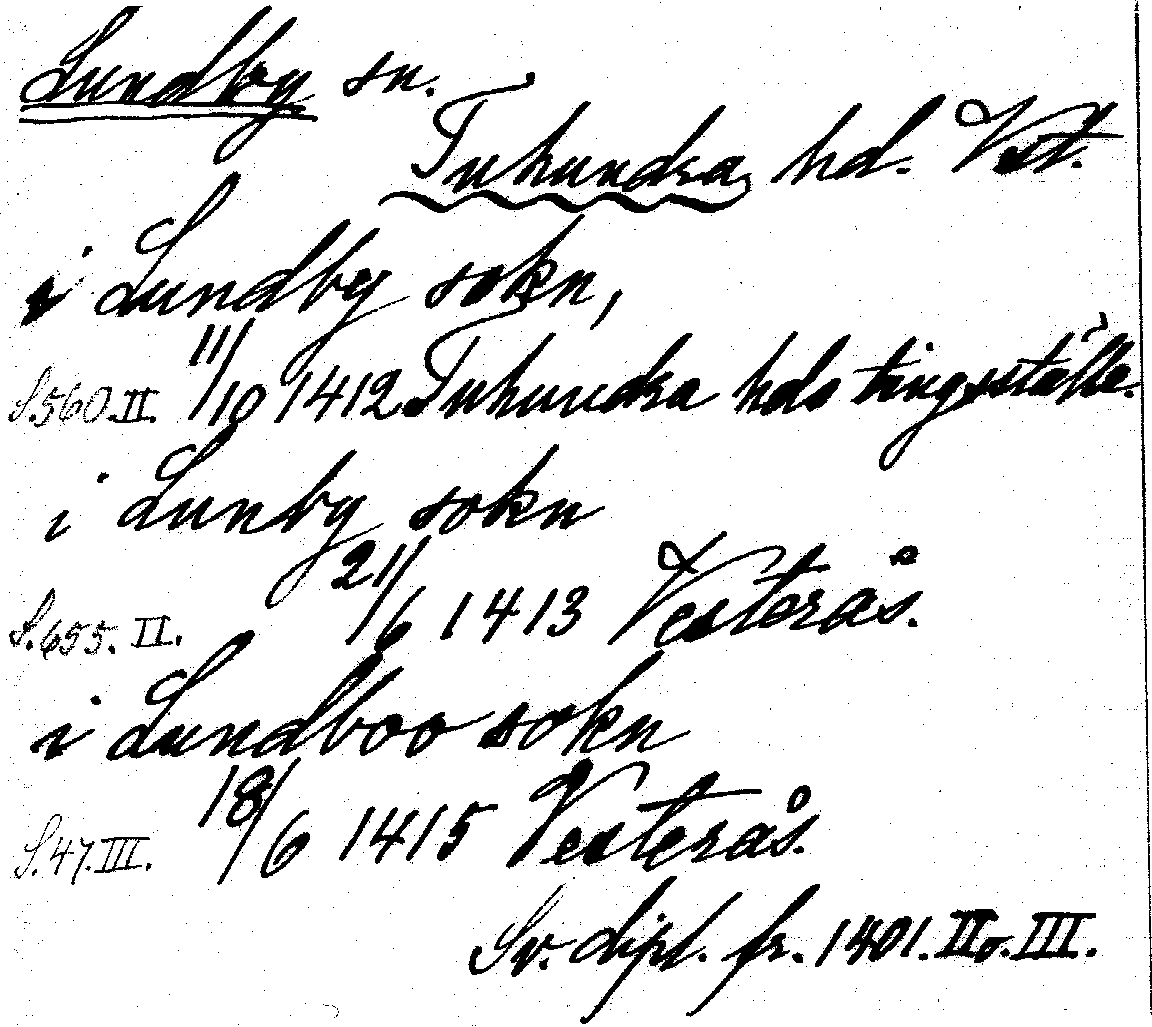 Lundby sn.
Tuhundra hd. Vst.
i Lundby sokn,
S. 560. II. 11/10 1412 Tuhundra hds tingställe.
i Lunby sokn
S. 655. II. 21/6 1413 Vesterås.
i Lundboo sokn
S. 47. III. 18/6 1415 Vesterås.
Sv. dipl. fr. 1401. II o. III.